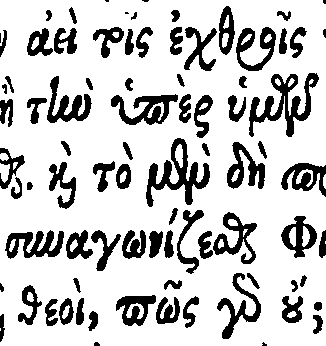 ἀεὶ τοῖς ἐχθροῖς
τὴν ὑπὲρ ὑμῶν
καὶ τὸ μὲν δὴ
συναγωνίζεσθαι
θεοὶ, πῶς γὰρ οὔ;